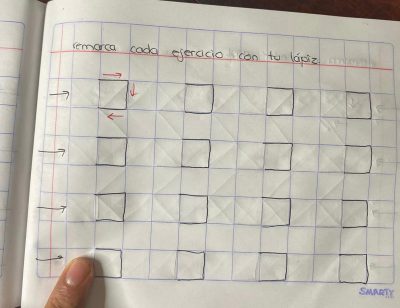 remarca cada ejercicio con tu lápiz
SMARTY